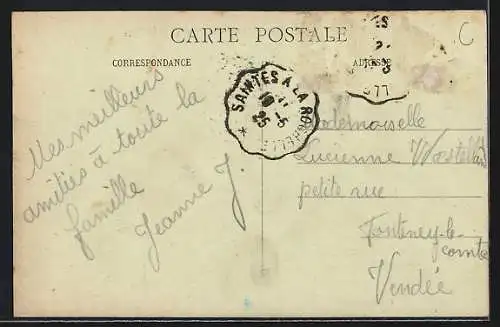 CARTE POSTALE
C
CORRESPONDANCE
ADRESSE
SAINTES A LA ROCHELLE
10 -5
25
Mes meilleurs
amitiés à toute la
famille
Jeanne J.
Mademoiselle
Lucienne
petite rue
Fontenay-le-
comte
Vendée